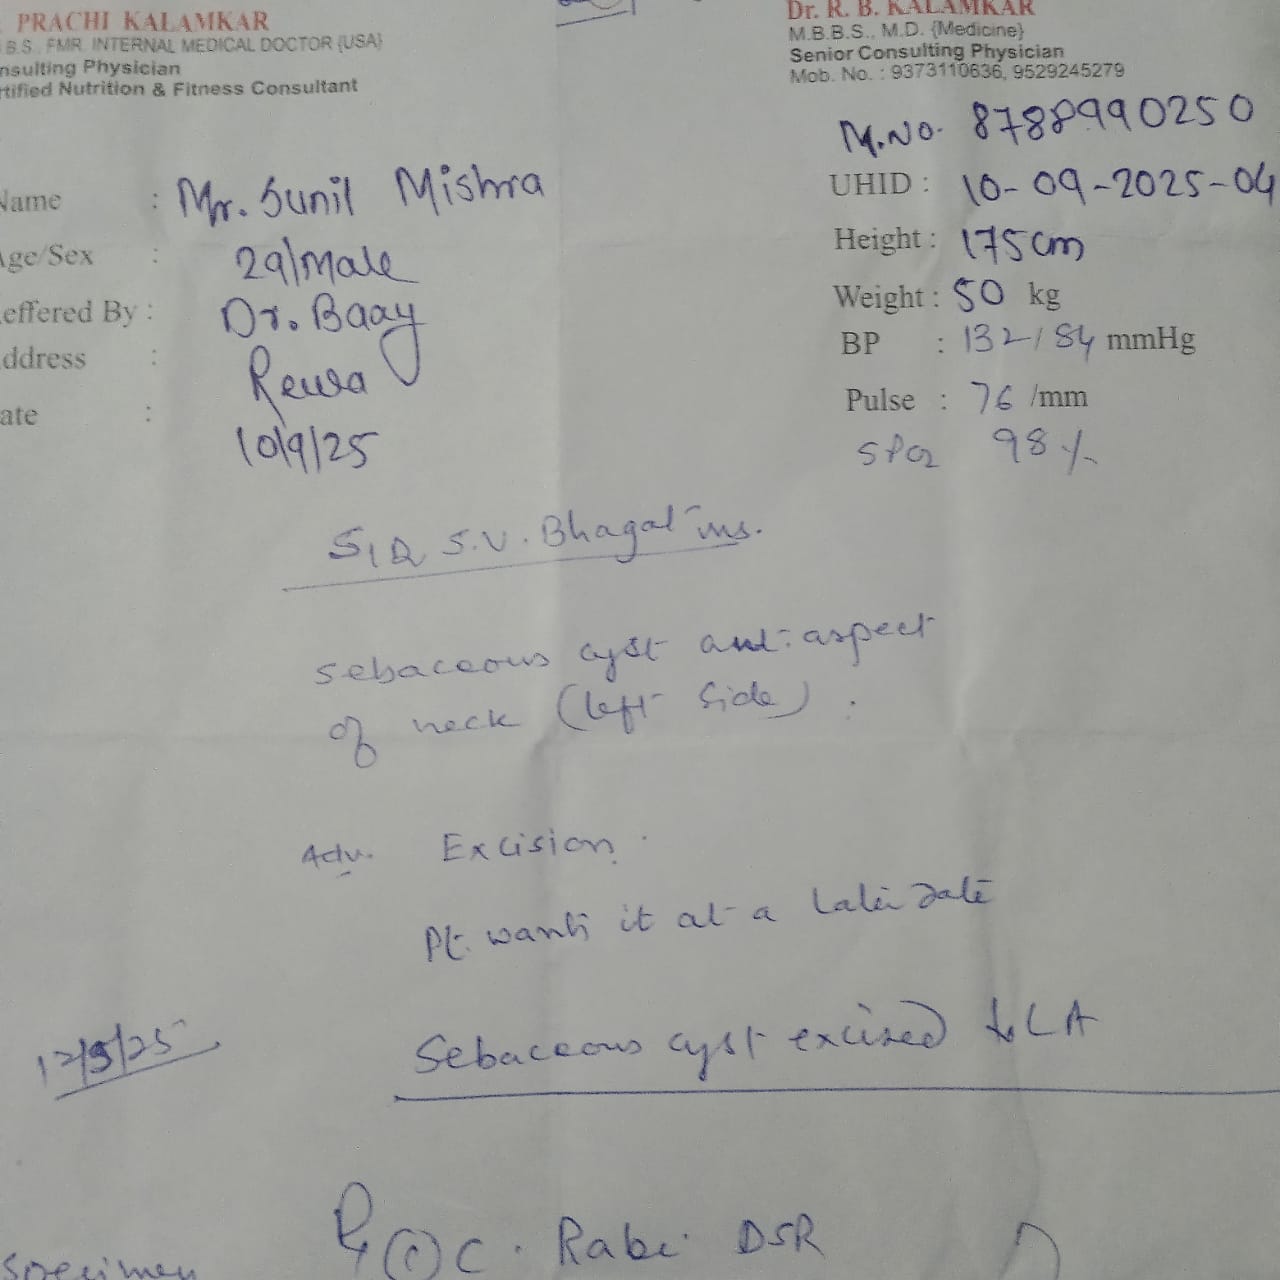 PRACHI KALAMKAR
B.S. FMR. INTERNAL MEDICAL DOCTOR (USA)
nsulting Physician
rtified Nutrition & Fitness Consultant
Dr. R. B. KALAMKAR
M.B.B.S., M.D. (Medicine)
Senior Consulting Physician
Mob. No. : 9373110636, 9529245279
M.No. 8788990250
Name : Mr. Sunil Mishra
Age/Sex : 29/Male
effered By : Dr. Baay
ddress : Rewa
ate : 10/9/25
UHID : 10-09-2025-04
Height : 175cm
Weight : 50 kg
BP : 132/84 mmHg
Pulse : 76 /mm
SPO2 98%
S.V. Bhagat
sebaceous cyst ant. aspect
of neck (left side).
Adv. Excision.
Pt. wants it at a later date
12/9/25
Sebaceous cyst excised LA
℞ ① C. Rabe DSR
specimen